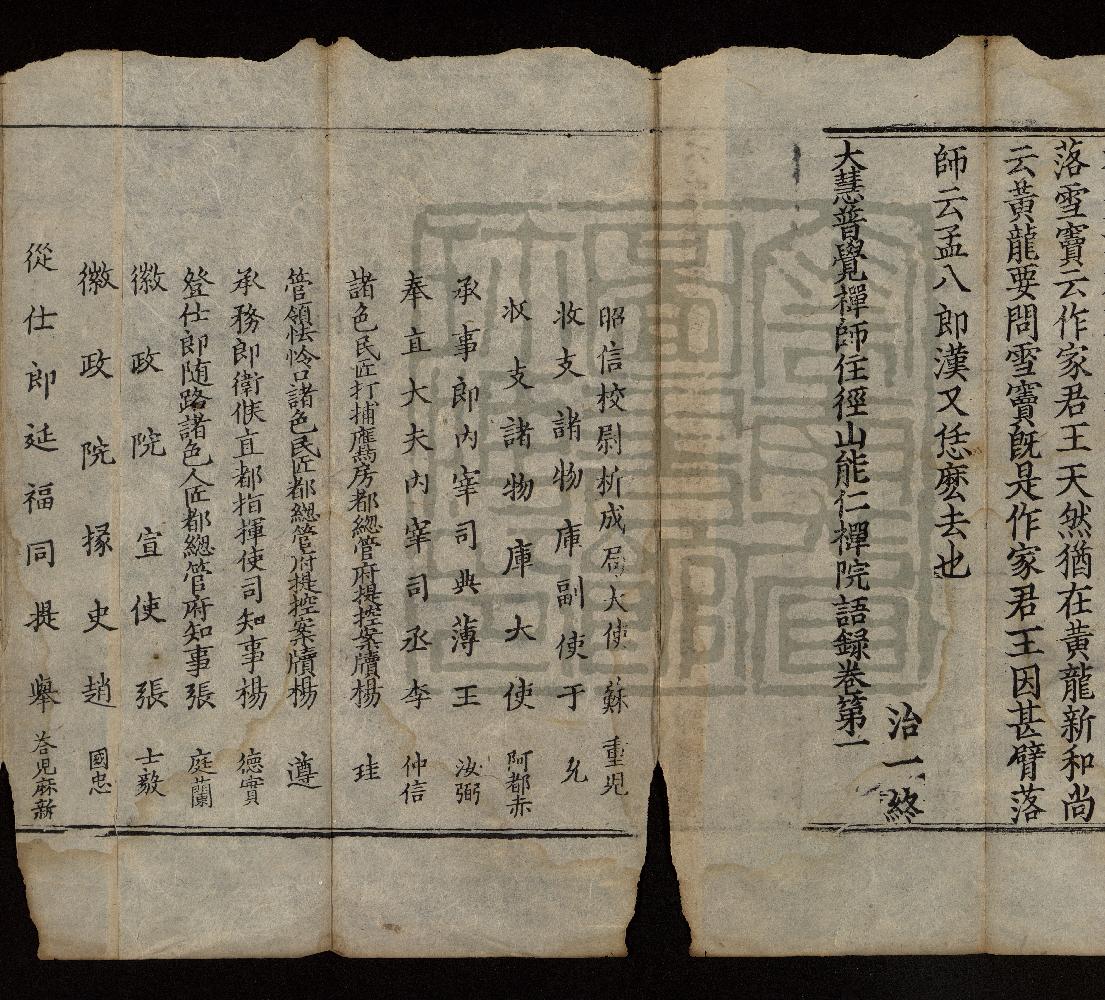 落雪竇云作家君王天然猶在黄龍新和尚
云黄龍要問雪竇既是作家君王因甚臂落
師云孟八郎漢又恁麽去也
治一終
大慧普覺禪師住徑山能仁禪院語録卷第一
昭信校尉析成局大使蘇重児
收支諸物庫副使于允
收支諸物庫大使阿都赤
承事郎内宰司典薄王汝弼
奉直大夫内宰司丞李仲信
諸色民匠打捕鷹房都總管府提控案牘楊珪
管領怯怜口諸色民匠都總管府提控案牘楊遵
承務郎衛候直都指揮使司知事楊德實
登仕郎随路諸色人匠都總管府知事張庭蘭
徽政院宣使張士毅
徽政院掾史趙國忠
從仕郎延福同提舉荅児麻新